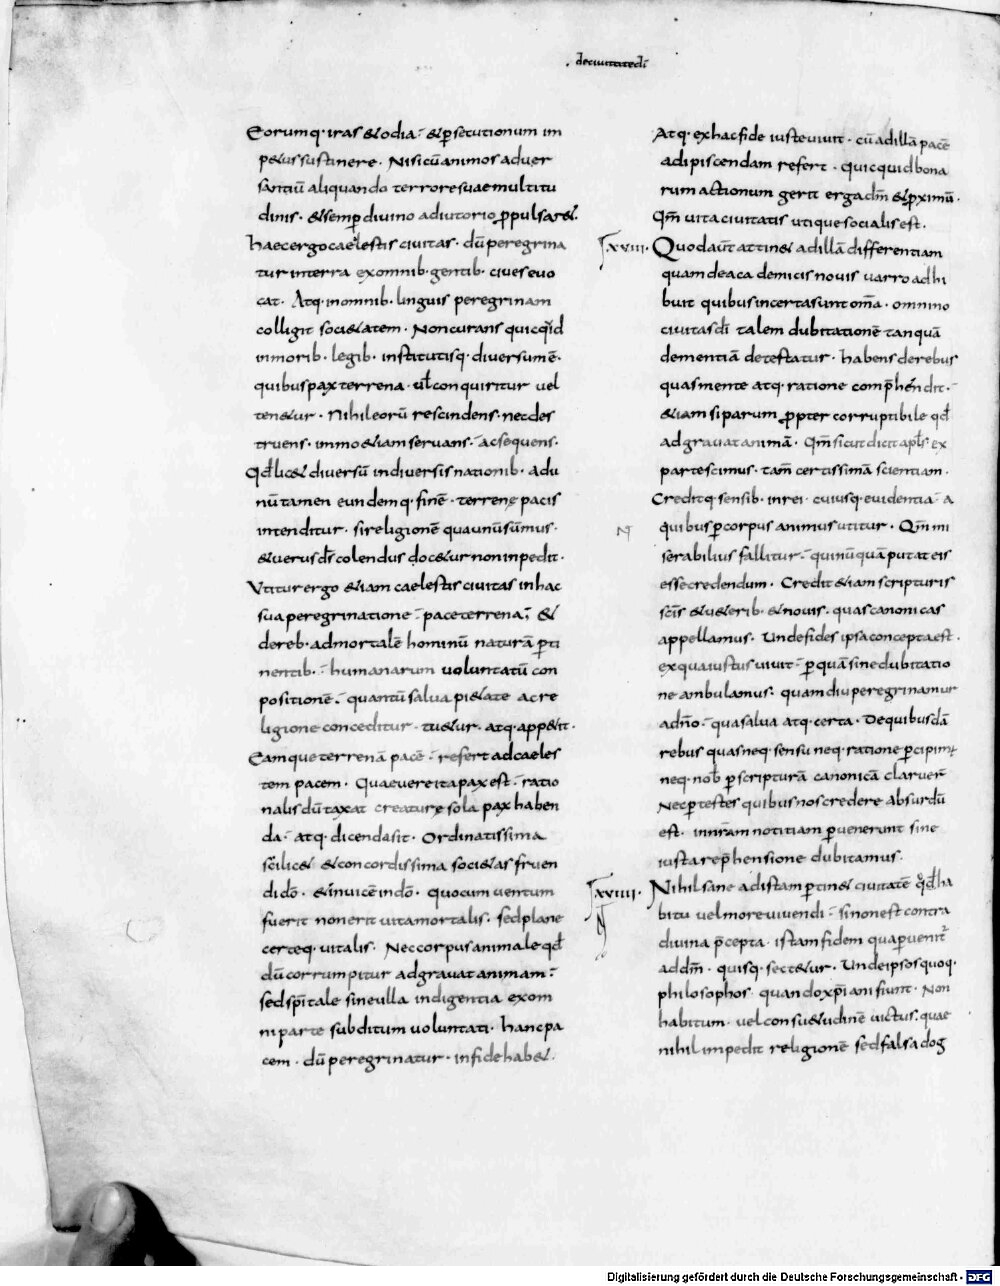 . deciuitatedi
Eorumq· iras & odia· & p̄secutionum im
p&us sustinere. Nisi cū animos aduer
santiū aliquando terrore suae multitu
dinis· & semp̄ divino adiutorio p̄pulsar&.
haec ergo caelestis civitas· dū peregrina
tur in terra ex omnib· gentib· cives evo
cat· Atq· in omnib· linguis peregrinam
colligit soci&atem· Non curans quicq'd
in morib· legib· institutisq· diversum ē·
quibus pax terrena· ut̄ conquiritur vel
ten&ur· Nihil eorū rescindens· nec des
truens· immo &iam servans· ac sequens·
Qđ lic& diversū in diversis nationib· adu
nū tamen eundemq· finē· terrenę pacis
intenditur· si religionē qua unus sūmus·
& verus d̄s colendus doc&ur non inpedit·
Vtitur ergo &iam caelestis civitas in hac
sua peregrinatione· pace terrena; &
de reb· ad mortalē hominū naturā p̄ti
nentib·· humanarum voluntatū con
positionē· quantū salva pi&ate ac re
ligione conceditur· tu&ur· atq· app&it·
Eamque terrenā pacē· refert ad caeles
tem pacem· Quae vere ita pax est· ratio
nalis dū taxat creaturę sola pax haben
da· atq· dicenda sit· Ordinatissima
scilic& & concordissima soci&as fruen
di dō· & invicē in dō· Quo cum ventum
fuerit non erit vita mortalis· sed plane
certeq· vitalis· Nec corpus animale qđ
dū corrumpitur adgravat animam·
sed sp̄itale sine ulla indigentia ex om
ni parte subditum voluntati· hanc pa
cem· dū peregrinatur· in fide hab&·
Atq· ex hac fide iuste vivit· cū ad illā pacē
adipiscendam refert· quicquid bona
rum actionum gerit erga dm̄ & p̄ximū·
Qm̄ vita civitatis utique socialis est·
xviii· Quod aut̄ attin& ad illā differentiam
quam de academicis novis varro adhi
buit quibus incerta sunt om̄a· omnino
civitas dī talem dubitationē tanquā
dementiā detestatur· habens de rebus
quas mente atq· ratione comp̄hendit·
&iam si parum p̄pter corruptibile qđ
adgravat animā· Qm̄ sicut dicit apłs ex
parte scimus· tam̄ certissimā scientiam·
Creditq· sensib· in rei· cuiusq· evidentia· a
quibus p̄ corpus animus utitur· Qm̄ mi
serabilius fallitur· qui nūquā putat eis
esse credendum· Credit &iam scripturis
scīs & v&erib· & novis· quas canonicas
appellamus· Unde fides ipsa concepta est·
ex qua iustus vivit· p̄ quā sine dubitatio
ne ambulamus· quamdiu peregrinamur
a dn̄o· qua salva atq· certa· De quibusdā
rebus quas neq· sensu neq· ratione p̄cipim;
neq· nob̄ p̄ scripturā canonicā claruer̄
Nec p̄ testes quibus non credere absurdū
est· in nr̄am notitiam p̄venerunt sine
iusta rep̄hensione dubitamus·
xviiii· Nihil sane ad istam p̄tin& civitatē qđ ha
bitu vel more vivendi· si non est contra
divina p̄cepta· istam fidem qua p̄venit̄
ad dm̄· quisq· sect&ur· Unde ipsos quoq·
philosophos· quando xp̄iani fiunt· Non
habitum· vel consu&udinē victus· quae
nihil impedit religionē sed falsa dog
Digitalisierung gefördert durch die Deutsche Forschungsgemeinschaft · DFG